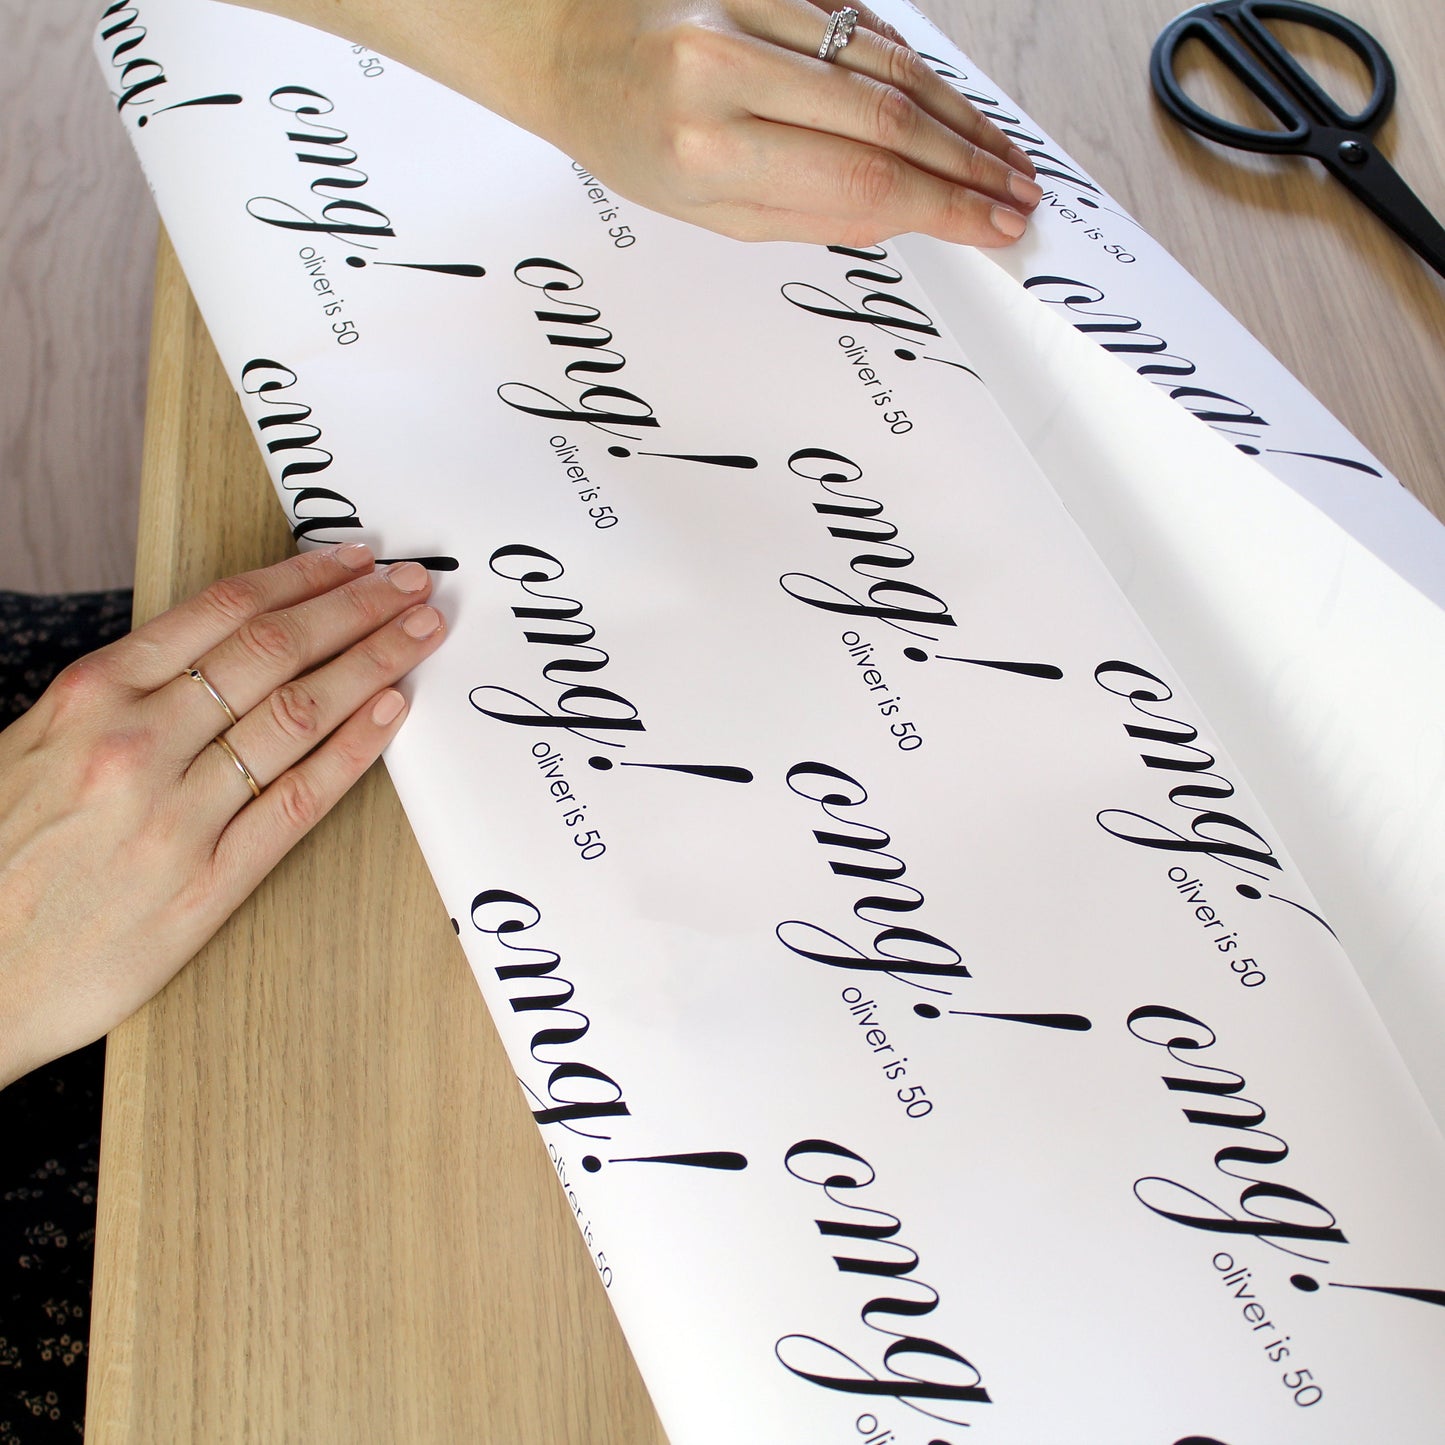 omg!
is 50
omg!
oliver is 50
oliver is 50
omg!
oliver is 50
omg!
oliver is 50
omg!
oliver is 50
omg!
omg!
omg!
oliver is 50
omg!
oliver is 50
omg!
oliver is 50
omg!
oliver is 50
omg!
oliver is 50
omg!
oliver is 50
omg!
oliver is 50
omg!